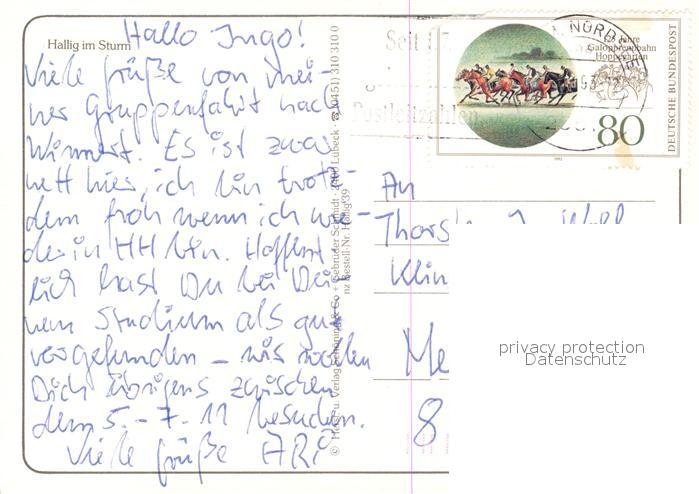 Hallig im Sturm
Hallo Ingo!
Viele Grüße von mei-
ner Gruppenfahrt nach
Winnert. Es ist zwar
nett hier, ich bin trotz-
dem froh wenn ich wie-
der in HH bin. Hoffent
lich hast Du bei Dei
nem Studium als gut
vorgefunden – wir wollen
Dich übrigens zwischen
dem 5.-7.11 besuchen.
Viele Grüße ARi
© Verlag Schöning & Co + Gebrüder Schmidt · Lübeck · ☎ (0451) 310 310 0
nz Bestell-Nr. Hallig 39
Seit
Postleitzahlen
125 Jahre
Galopprennbahn
Hoppegarten
DEUTSCHE BUNDESPOST
80
1992
An
Klin
Me
8
privacy protection
Datenschutz